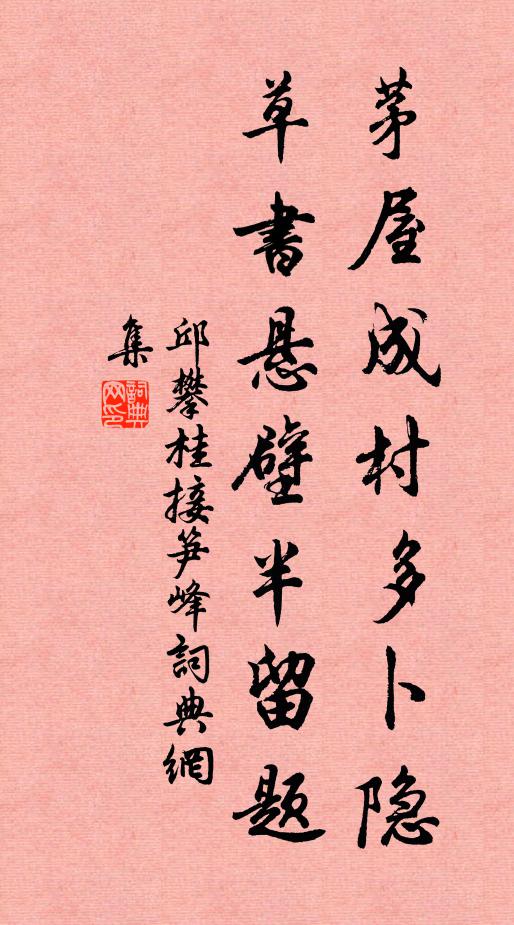 茅屋成村多卜隐
草書悬壁半留题
邱攀桂接笋峰詞典網
集
詞典
网印